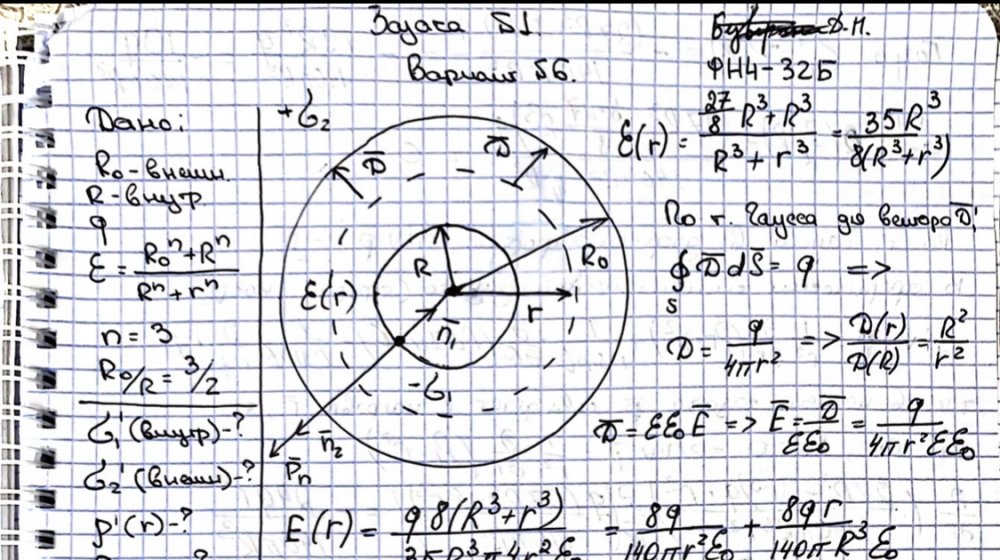 Задача №1.
Вариант №6.
Д.Н.
ФН4-32Б
Дано:
R₀-внешн.
R-внутр
q
ε = (R₀ⁿ+Rⁿ)/(Rⁿ+rⁿ)
n = 3
R₀/R = 3/2
σ₁'(внутр)-?
σ₂'(внешн)-?
ρ'(r)-?
+σ₂
D̄
D̄
R
R₀
ε(r)
r
n̄₁
-σ₁
n̄₂
P̄n
ε(r) = (27/8 R³+R³)/(R³+r³) = 35R³/(8(R³+r³))
По т. Гаусса для вектора D̄:
∮ D̄dS̄ = q =>
S
D = q/(4πr²) => D(r)/D(R) = R²/r²
D̄ = εε₀Ē => Ē = D̄/(εε₀) = q/(4πr²εε₀)
E(r) = q8(R³+r³)/(35R³π4r²ε₀) = 8q/(140πr²ε₀) + 8qr/(140πR³ε₀)